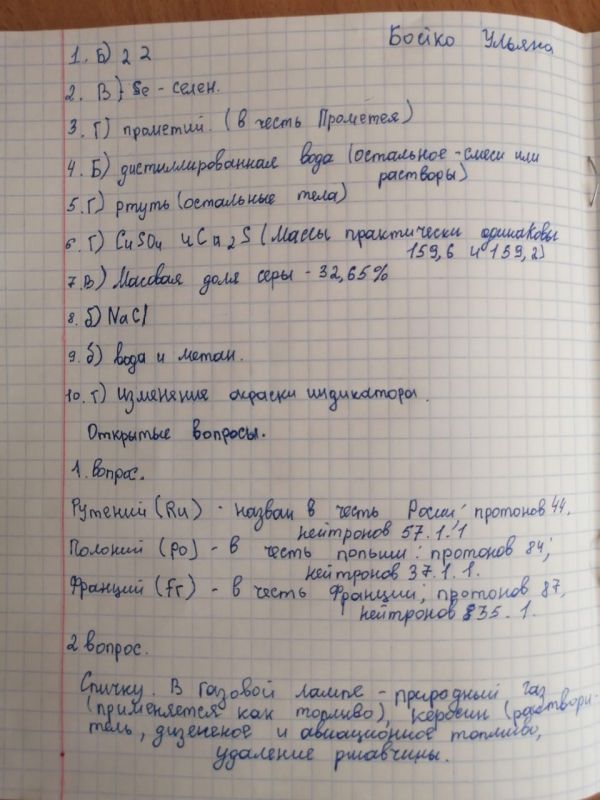 Бойко Ульяна
1. Б) 2 2
2. В) Se - селен.
3. Г) прометий. (в честь Прометея)
4. Б) дистиллированная вода (остальное - смеси или
растворы)
5. Г) ртуть (остальные тела)
6. Г) CuSO4 и Cu2S (Массы практически одинаковы
159,6 и 159,2)
7. В) Массовая доля серы - 32,65%
8. б) NaCl
9. б) вода и метан.
10. г) изменения окраски индикатора.
Открытые вопросы.
1. вопрос.
Рутений (Ru) - назван в честь России; протонов 44,
нейтронов 57.1.1
Полоний (Po) - в честь польши: протонов 84;
нейтронов 37.1.1.
Франций (Fr) - в честь Франции; протонов 87,
нейтронов 835.1.
2 вопрос.
Спичку. В газовой лампе - природный газ
(применяется как торливо), керосин (раствори-
тель, дизеное и авиационное топливо,
удаление ржавчины.